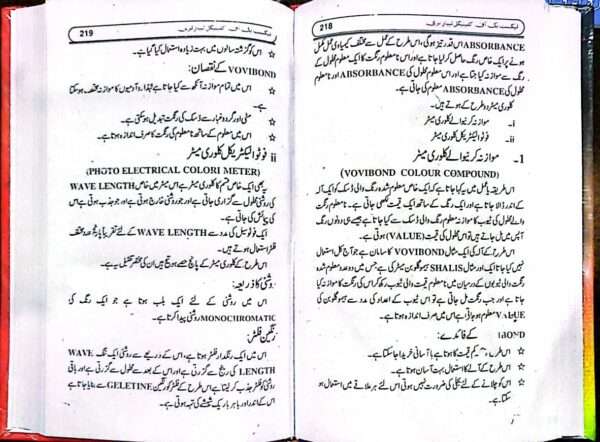 218
ٹیکسٹ بک آف کلینیکل لیبارٹری
ABSORBANCE اس قدر تیز ہوگی، اس طرح کے عمل سے مختلف کیمیاوی عمل مکمل
ہونے پر ایک خاص رنگ حاصل کر لیا جاتا ہے اور اس نا معلوم رنگت کا ایک معلوم محلول کی
رنگ سے موازنہ کیا جاتا ہے اور اس معلوم محلول کی ABSORBANCE اور نا معلوم
محلول کی ABSORBANCE معلوم کی جاتی ہے۔
کلوری میٹر دو طرح کے ہوتے ہیں۔
i۔ موازنہ کرنیوالے کلوری میٹر
ii۔ فوٹو الیکٹریکل کلوری میٹر
1۔ موازنہ کرنے والے کلوری میٹر
(VOVIBOND COLOUR COMPOUND)
اس طریقہ یا عمل میں یہ کیا جاتا ہے کہ ایک خاص معلوم شدہ رنگ والی ڈسک کو ایک آلہ
کے اندر ڈالا جاتا ہے اور ایک رنگ کے ساتھ ایک قیمت لکھی جاتی ہے۔ نا معلوم رنگت
والے محلول کی ٹیوب کا موازنہ معلوم رنگ والی ڈسک سے کیا جاتا ہے جیسے ہی دونوں رنگ
آپس میں مل جاتے ہیں تو اس محلول کی قیمت (VALUE) ہوتی ہے۔
اس طرح کے آلہ کی ایک مثال VOVIBOND کا سامان ہے جو آج کل استعمال
نہیں کیا جاتا ایک اور مثال SHALIS ہیموگلوبن میٹر کی ہے جس میں دو عدد معلوم شدہ
رنگت والی ٹیوبوں کے درمیان میں نا معلوم قیمت والی ٹیوب رکھ کر اس کی رنگت کا موازنہ کیا
جاتا ہے اور جب رنگت مل جاتی ہے تو اس ٹیوب کے اعداد کی مدد سے ہیموگلوبن کی
VALUE معلوم ہو جاتی ہے اس میں صرف اندازہ ہوتا ہے۔
BOND) کے فائدے:
☆ اس طرح کم قیمت کا ہوتا ہے با آسانی خریدا جا سکتا ہے۔
☆ اس طرح کے آلے کا استعمال بہت آسان ہوتا ہے۔
☆ اس کو چلانے کے لئے بجلی کی ضرورت نہیں ہوتی اس لئے ہر علاقے میں استعمال ہو
سکتا ہے۔
219
ٹیکسٹ بک آف کلینیکل لیبارٹری
☆ اس کو گزشتہ سالوں میں بہت زیادہ استعمال کیا گیا ہے۔
VOVIBOND کے نقصان:
☆ اس میں تمام موازنہ آنکھ سے کیا جاتا ہے لہٰذا دو آدمیوں کا موازنہ مختلف ہو سکتا
ہے۔
☆ مٹی اور گرد و غبار سے ڈسک کی رنگت تبدیل ہو سکتی ہے۔
☆ اس میں معلوم کے ساتھ نا معلوم کی رنگت کا صرف اندازہ ہوتا ہے۔
ii فوٹو الیکٹریکل کلوری میٹر
(PHOTO ELECTRICAL COLORI METER)
یہ بھی ایک خاص قسم کا کلوری میٹر ہے اس میں خاص WAVE LENGTH
کی روشنی محلول سے گزاری جاتی ہے اور جو روشنی خارج ہوتی ہے اور جو جذب ہوتی ہے اس
کی پیمائش کی جاتی ہے۔
ایک فوٹو سیل کی مدد سے WAVE LENGTH کے لئے تقریباً پانچ عدد مختلف
فلٹر استعمال ہوتے ہیں۔
اس طرح کے کلوری میٹر کے پانچ حصے ہوتے ہیں ان کی مختصر تفصیل یہ ہے۔
روشنی کا ذریعہ:
اس میں روشنی کے لئے ایک بلب ہوتا ہے جو ایک رنگ کی
MONOCHROMATIC روشنی پیدا کرتا ہے۔
رنگین فلٹر:
اس میں ایک رنگدار فلٹر ہوتا ہے، اس کے ذریعے سے روشنی ایک تنگ WAVE
LENGTH کی رینج سے گزرتی ہے اور اس کے بعد سے محلول سے گزرتی ہے اور باقی
روشنی کو فلٹر جذب کر لیتا ہے اس طرح کے فلٹر کو رنگین GELETINE سے بنایا جاتا ہے
اس کے اندر اور باہر باریک شیشے کی تہہ ہوتی ہے۔